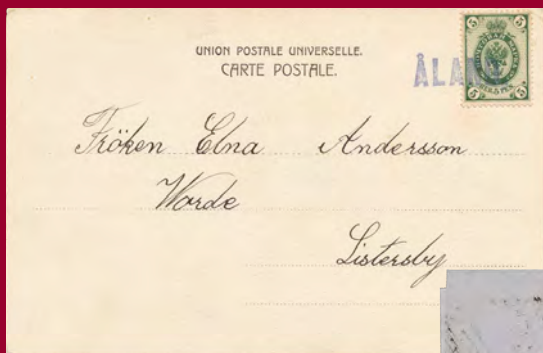 UNION POSTALE UNIVERSELLE.
CARTE POSTALE.
5 5
ÅLAND
5 PEN. 5
Fröken Elna Andersson
Worde
Listersby